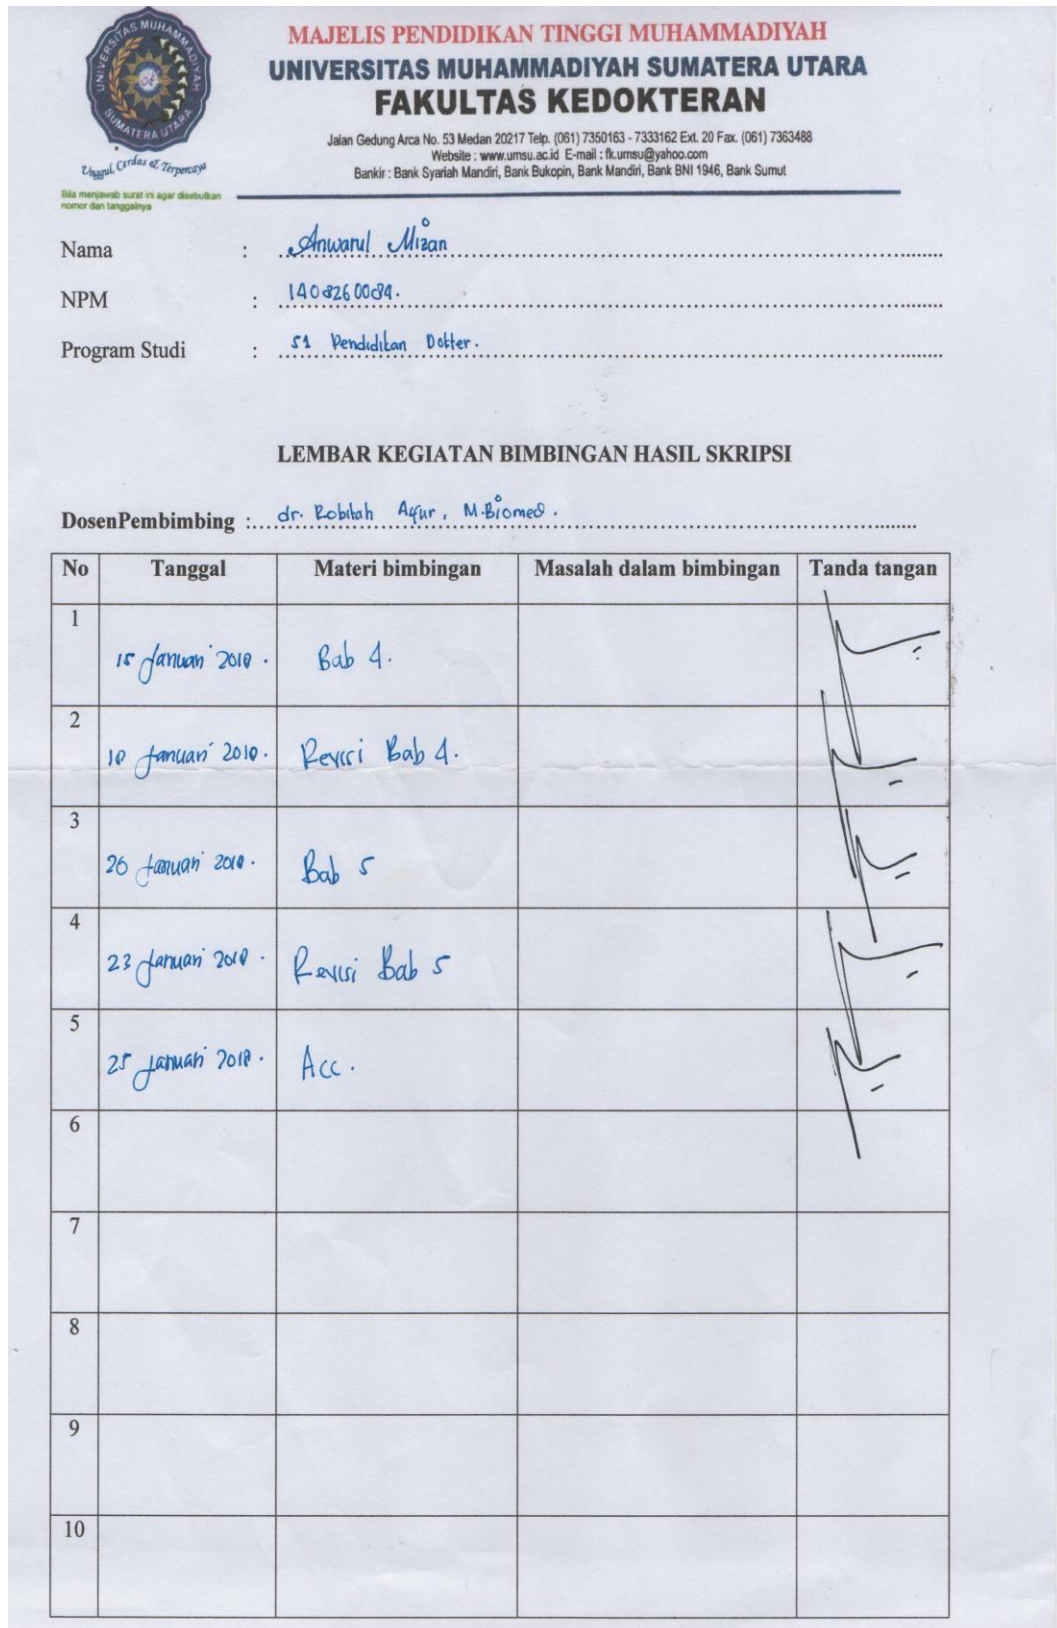 UNIVERSITAS MUHAMMADIYAH
SUMATERA UTARA
Unggul, Cerdas & Terpercaya
Bila menjawab surat ini agar disebutkan
nomor dan tanggalnya
MAJELIS PENDIDIKAN TINGGI MUHAMMADIYAH
UNIVERSITAS MUHAMMADIYAH SUMATERA UTARA
FAKULTAS KEDOKTERAN
Jalan Gedung Arca No. 53 Medan 20217 Telp. (061) 7350163 - 7333162 Ext. 20 Fax. (061) 7363488
Website : www.umsu.ac.id E-mail : fk.umsu@yahoo.com
Bankir : Bank Syariah Mandiri, Bank Bukopin, Bank Mandiri, Bank BNI 1946, Bank Sumut
Nama : Anwarul Mizan
NPM : 1408260084.
Program Studi : S1 Pendidikan Dokter.
LEMBAR KEGIATAN BIMBINGAN HASIL SKRIPSI
DosenPembimbing : dr. Robitah Asfur, M.Biomed.
No Tanggal Materi bimbingan Masalah dalam bimbingan Tanda tangan
1 15 Januari 2018. Bab 4.
2 18 Januari 2018. Revisi Bab 4.
3 20 Januari 2018. Bab 5
4 23 Januari 2018. Revisi Bab 5
5 25 Januari 2018. Acc.
6
7
8
9
10